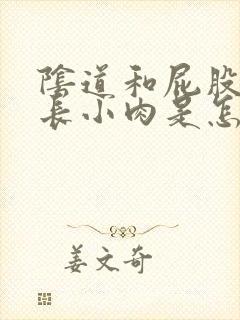 陰道和屁股
長小肉是怎
姜文奇